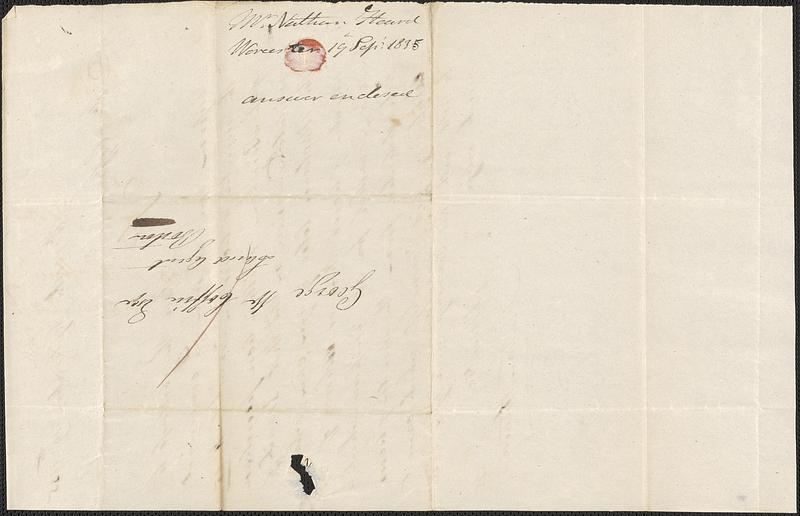 Mr. Nathan Heard
Worcester 19 Sept. 1835
answer enclosed
George W Coffin Esqr
Land Agent
Boston